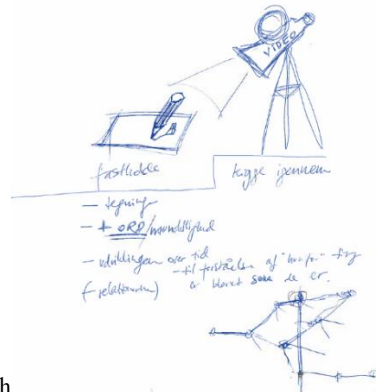 VIDEO
fastholde
kigge igennem
— tegninger
— + ORD/mundtlighed
— udviklingen over tid
— til forståelsen af "hvorfor" ting
(- relationerne)
er blevet som de er.
h